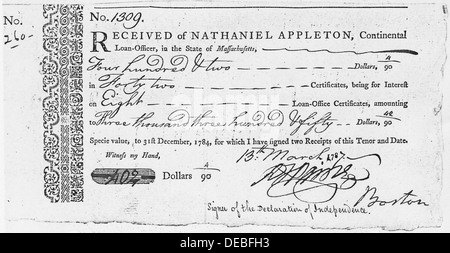 No. 1309.
No.
260
RECEIVED of NATHANIEL APPLETON, Continental
Loan-Officer, in the State of Massachusetts,
Four hundred & two Dollars, 4/90
in Forty two Certificates, being for Interest
on Eight Loan-Office Certificates, amounting
to Three thousand three hundred & fifty Dollars, 42/90
Special value, to 31st December, 1784, for which I have signed two Receipts of this Tenor and Date.
Witness my Hand, 13th March 1787
402 Dollars 4/90
Signer of the Declaration of Independence.
Boston
alamy stock photo
DEBFH3